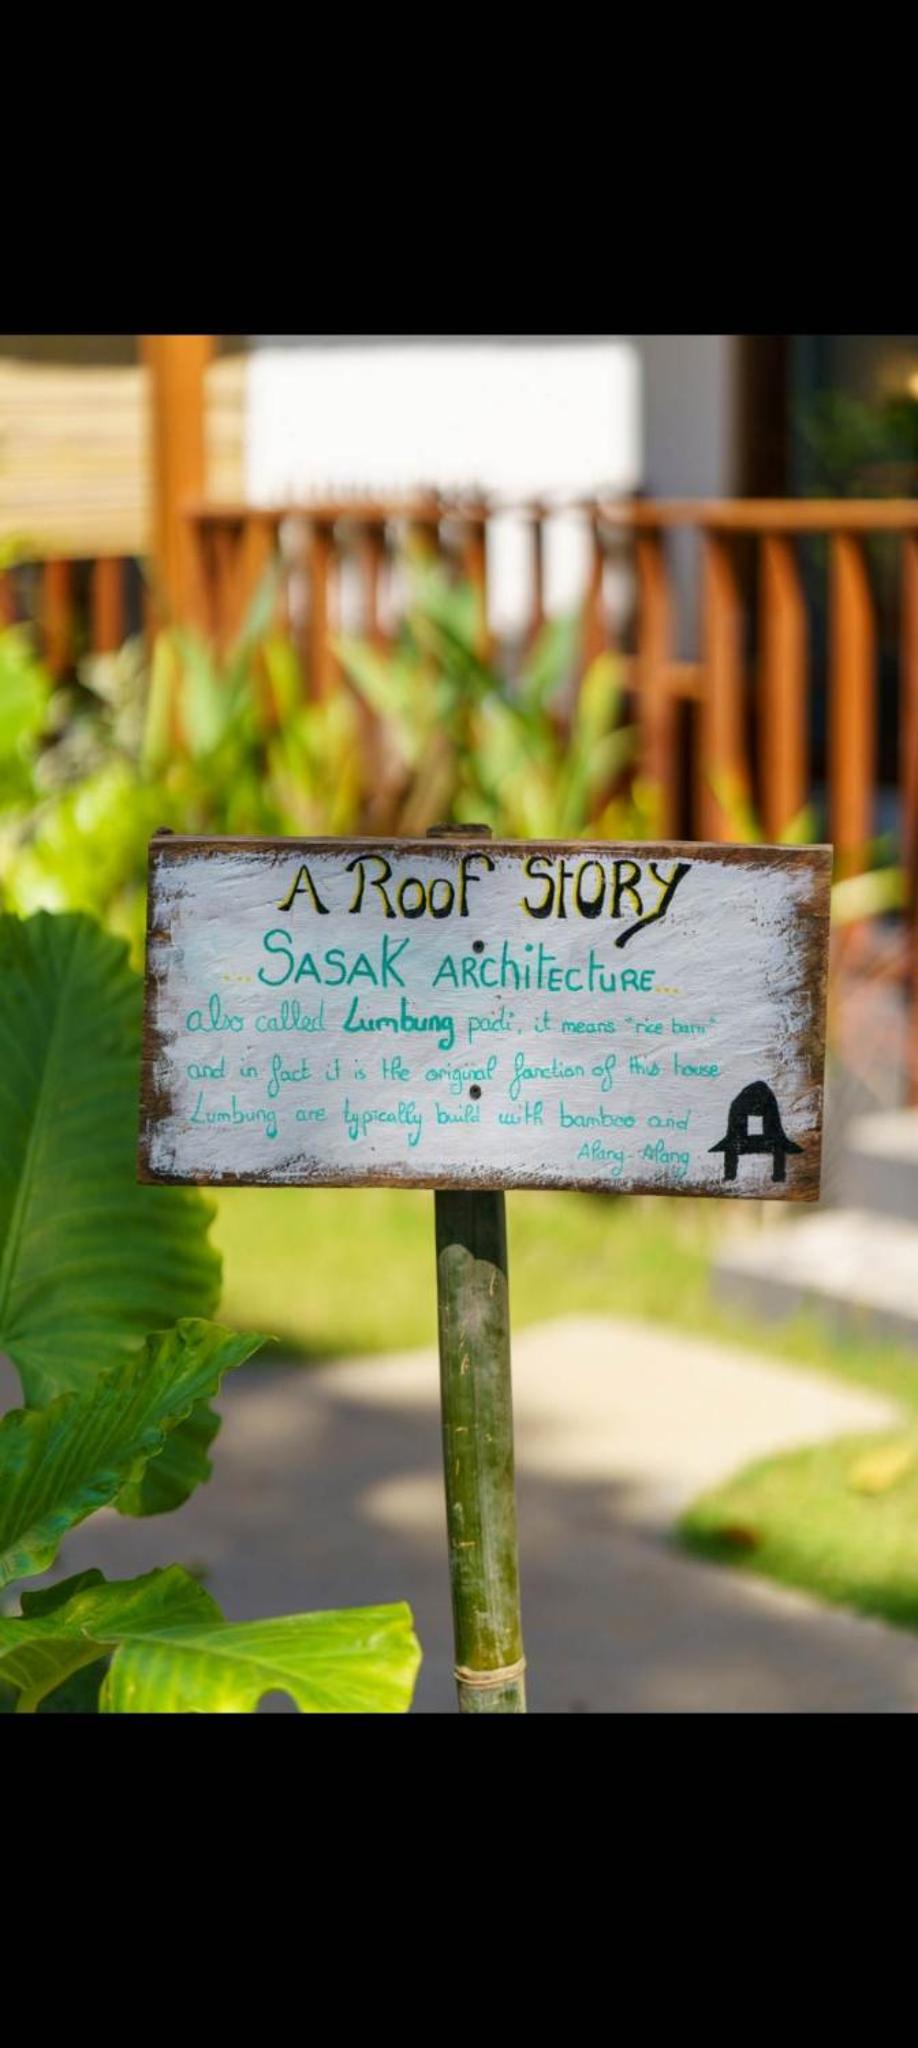 A ROOF STORY
...SASAK ARCHITECTURE...
also called Lumbung padi, it means "rice barn"
and in fact it is the original fanction of this house
Lumbung are typically build with bamboo and
Alang-Alang